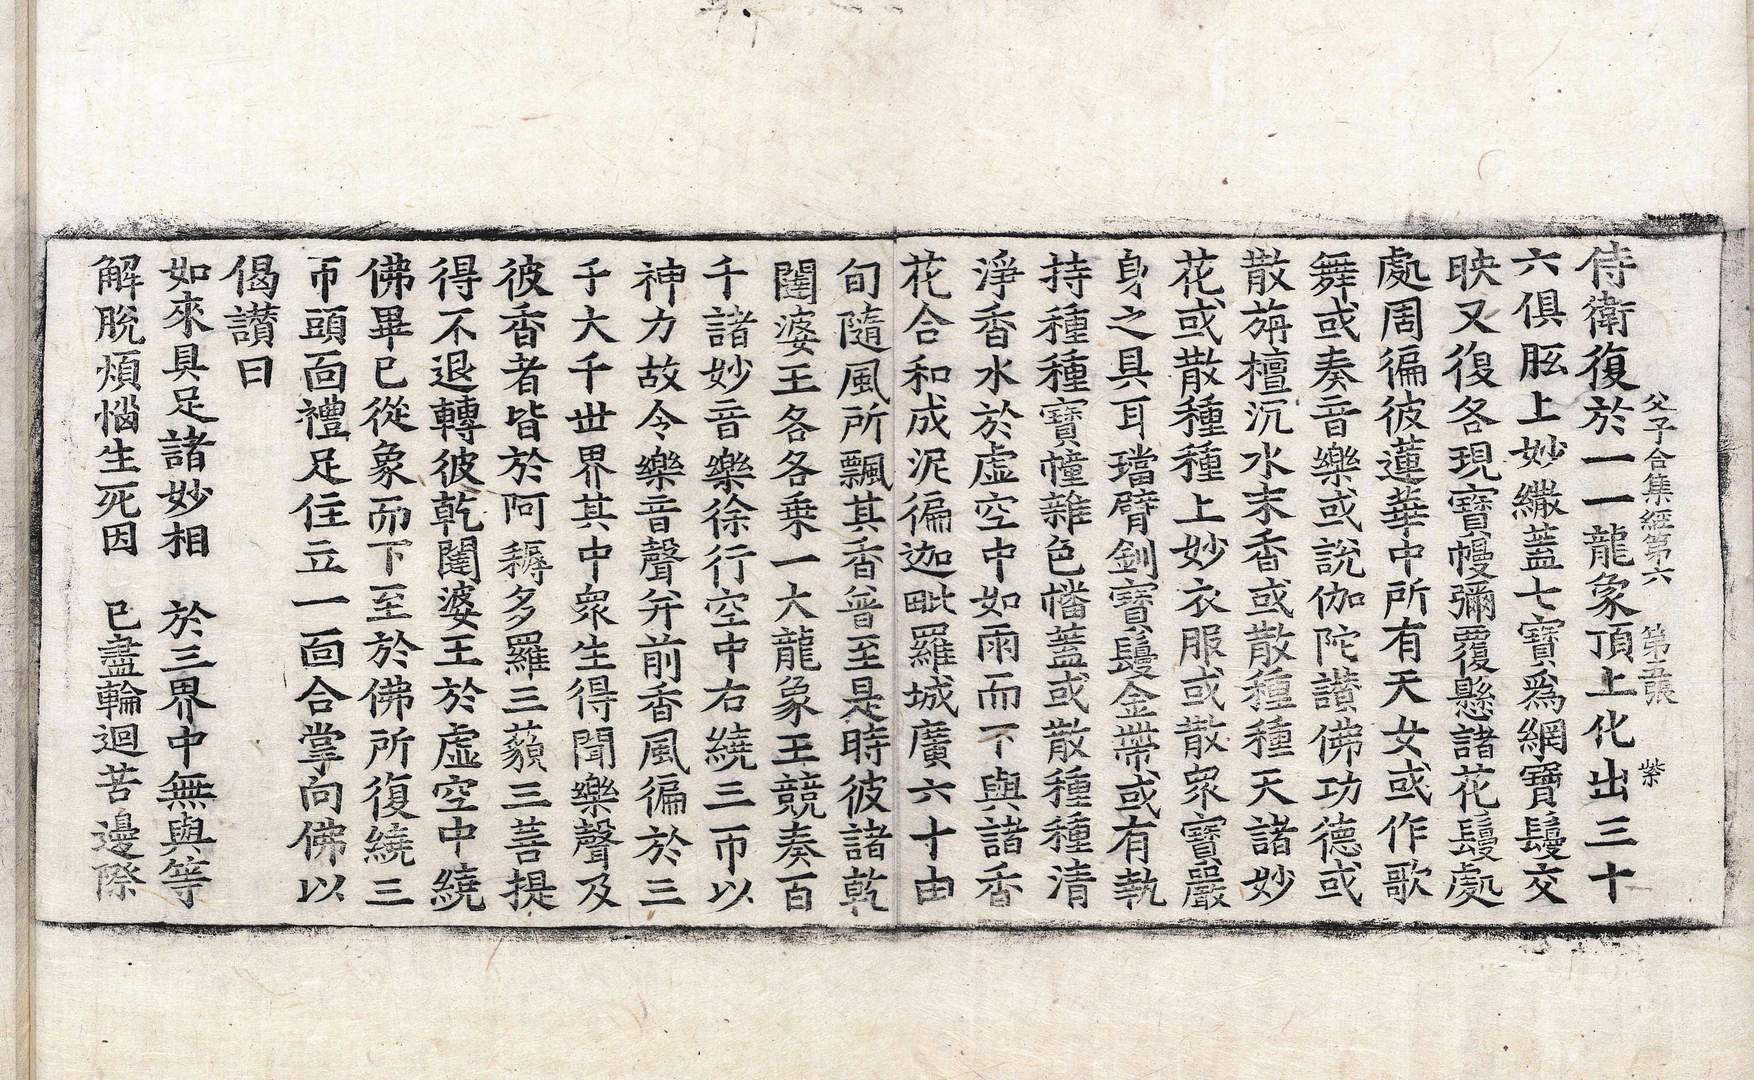 父子合集經第六 第五張 紫
侍衛復於一一龍象頂上化出三十
六俱胝上妙繖蓋七寶爲網寶鬘交
映又復各現寶幔彌覆懸諸花鬘處
處周徧彼蓮華中所有天女或作歌
舞或奏音樂或說伽陀讚佛功德或
散旃檀沉水末香或散種種天諸妙
花或散種種上妙衣服或散衆寶嚴
身之具耳璫臂釧寶鬘金帶或有執
持種種寶幢雜色幡蓋或散種種清
淨香水於虛空中如雨而下與諸香
花合和成泥徧迦毗羅城廣六十由
旬隨風所飄其香普至是時彼諸乾
闥婆王各各乗一大龍象王競奏百
千諸妙音樂徐行空中右繞三帀以
神力故令樂音聲幷前香風徧於三
千大千世界其中衆生得聞樂聲及
彼香者皆於阿耨多羅三藐三菩提
得不退轉彼乾闥婆王於虛空中繞
佛畢已從象而下至於佛所復繞三
帀頭面禮足住立一面合掌向佛以
偈讚曰
如來具足諸妙相 於三界中無與等
解脫煩惱生死因 已盡輪迴苦邊際